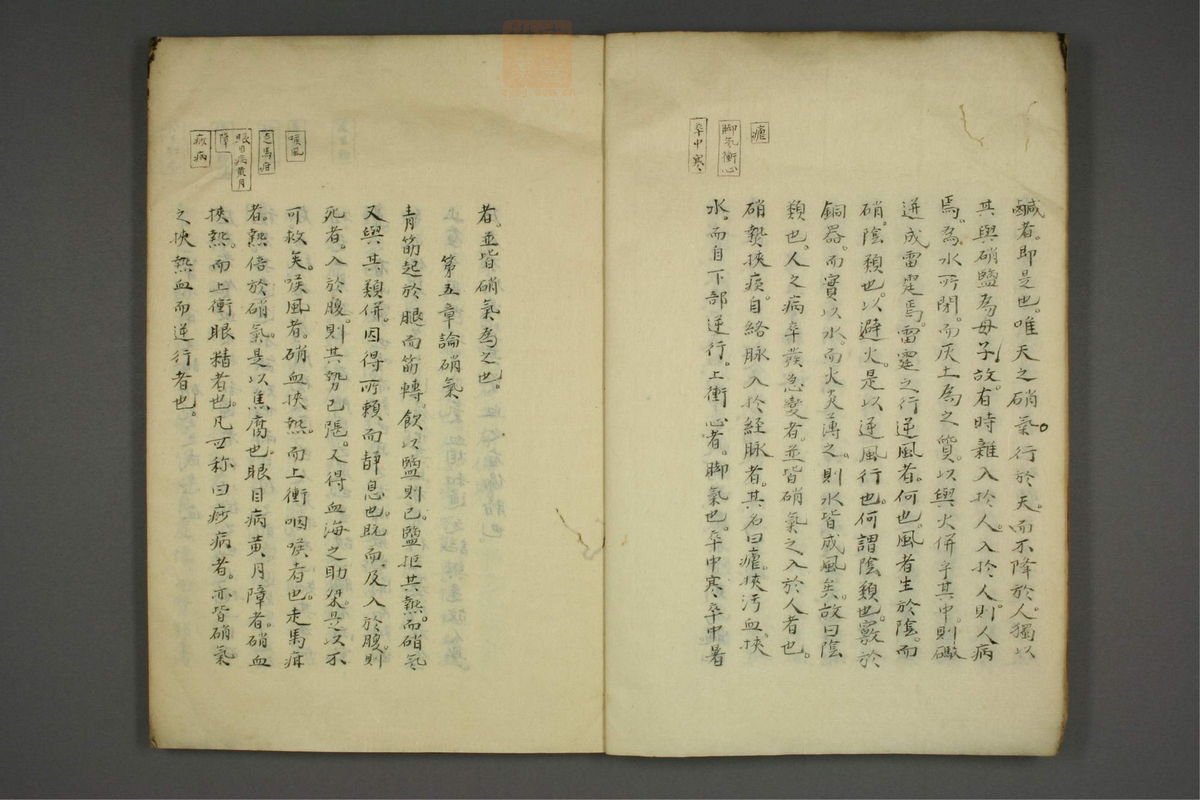 鹹者。即是也。唯天之硝氣。行於天。而不降於人。獨以
其與硝鹽為母子。故有時雜入於人。入於人。則人病
焉。為水所閉。而灰土為之質。以與火併乎其中。則
迸成雷霆焉。雷霆之行逆風者。何也。風者生於陰。而
硝。陰類也。以避火。是以逆風行也。何謂陰類也。於
銅器。而實以水。而火炎薄之。則水皆成風矣。故曰陰
類也。人之病卒發急變者。並皆硝氣之入於人者也。
硝挾痰。自絡脉入於経脉者。其名曰瘧。挾汚血。挾
水。而自下部逆行。上衝心者。脚氣也。卒中寒。卒中暑
瘧
脚氣衝心
卒中寒
者。並皆硝氣為之也。
第五章論硝氣
青筋起於腿而筋轉。飲以鹽則已。鹽拒其熱。而硝氣
又與其類併。因得所頼而静息也。既而及入於腹。則
死者。入於腹。則其勢已。又得血海之助。是以不
可救矣。喉風者。硝血挾熱。而上衝咽喉者也。走馬疳
者。熱倍於硝氣。是以焦腐也。眼目病黄月障者。硝血
挾熱。而上衝眼精者也。凡所称曰痧病者。亦皆硝氣
之挾熱血而逆行者也。
喉風
走馬疳
眼目病黄月
障
痧病